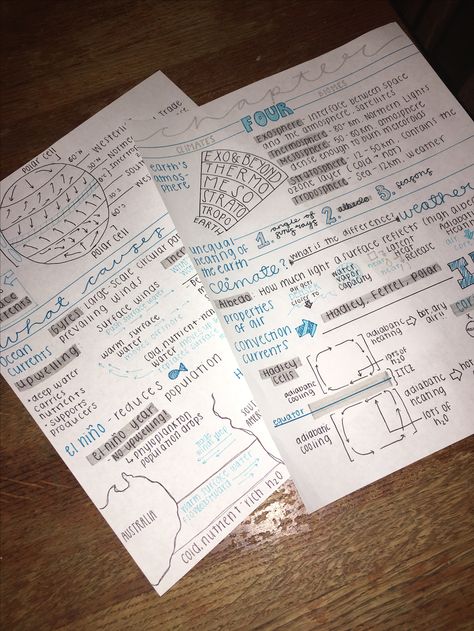 chapter
FOUR
CLIMATES
BIOMES
earth's
atmo
sphere
EXO & BEYOND
THERMO
MESO
STRATO
TROPO
EARTH
Exosphere: interface between space
and the atmosphere. satellites
Thermosphere: 80+ km. Northern Lights
Mesosphere: 50-80 km. atmosphere
dense enough to burn meteroids
Stratosphere: 12-50 km. contains the
ozone layer. cold → hot
Troposphere: sea-12 km. weather
unequal
heating of
the earth
1. angle of
sun's rays
2. albedo
3. seasons
climate? what is the difference? weather
Albedo: How much light a surface reflects (high albedo
properties
of air
water
vapor
capacity
latent
heat
release
convection
currents
Hadley, Ferrel, Polar
Hadley
Cells
adiabatic
cooling
adiabatic
heating
hot, dry
air!!
lots of
H₂O
ITCZ
equator
adiabatic
cooling
adiabatic
heating
lots of
H₂O
polar cell
60°N
30°N
0°
30°S
60°S
polar cell
Trade
what causes
Ocean
currents
Gyres: large-scale circular
prevailing winds
surface winds
warm surface
water
cold, nutrient-
water
upwelling:
-deep water
carries
nutrients
-supports
producers
el niño - reduces population
el niño year:
- No upwelling!
↳ phytoplankton
population drops
SOUTH
AMERICA
AUSTRALIA
warm surface water
cold, nutrient rich H₂O